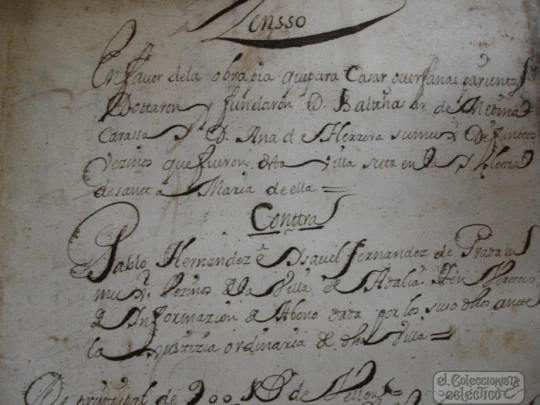 Zensso
En faver dela obra pia que para Casar guerfanas parientas
Dottaron y fundaron D. Baltasar de Medina
Carassa y D. Ana de Herrera su muger Defuntos
Vezinos que fueron desta villa sita en la Yglesia
de santa Maria de ella =
Contra
Pablo Hernandez e Ysauel Fernandez de Prada su
muger Vezinos de la Villa de Atalia
Informazion de Abono dada por los suso dhos ante
la Justizia ordinaria de dha Villa =
De prinzipal de 200 Ds de Vellon =
el Coleccionista
ecléctico